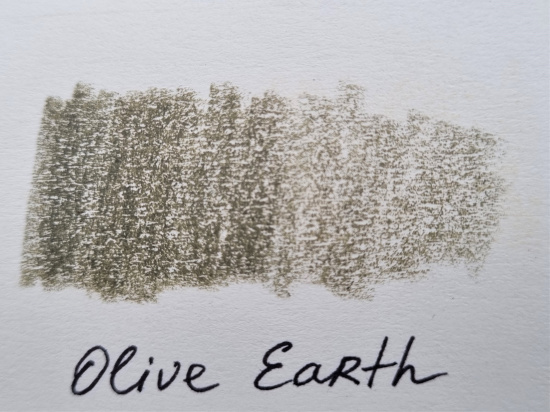 Olive Earth